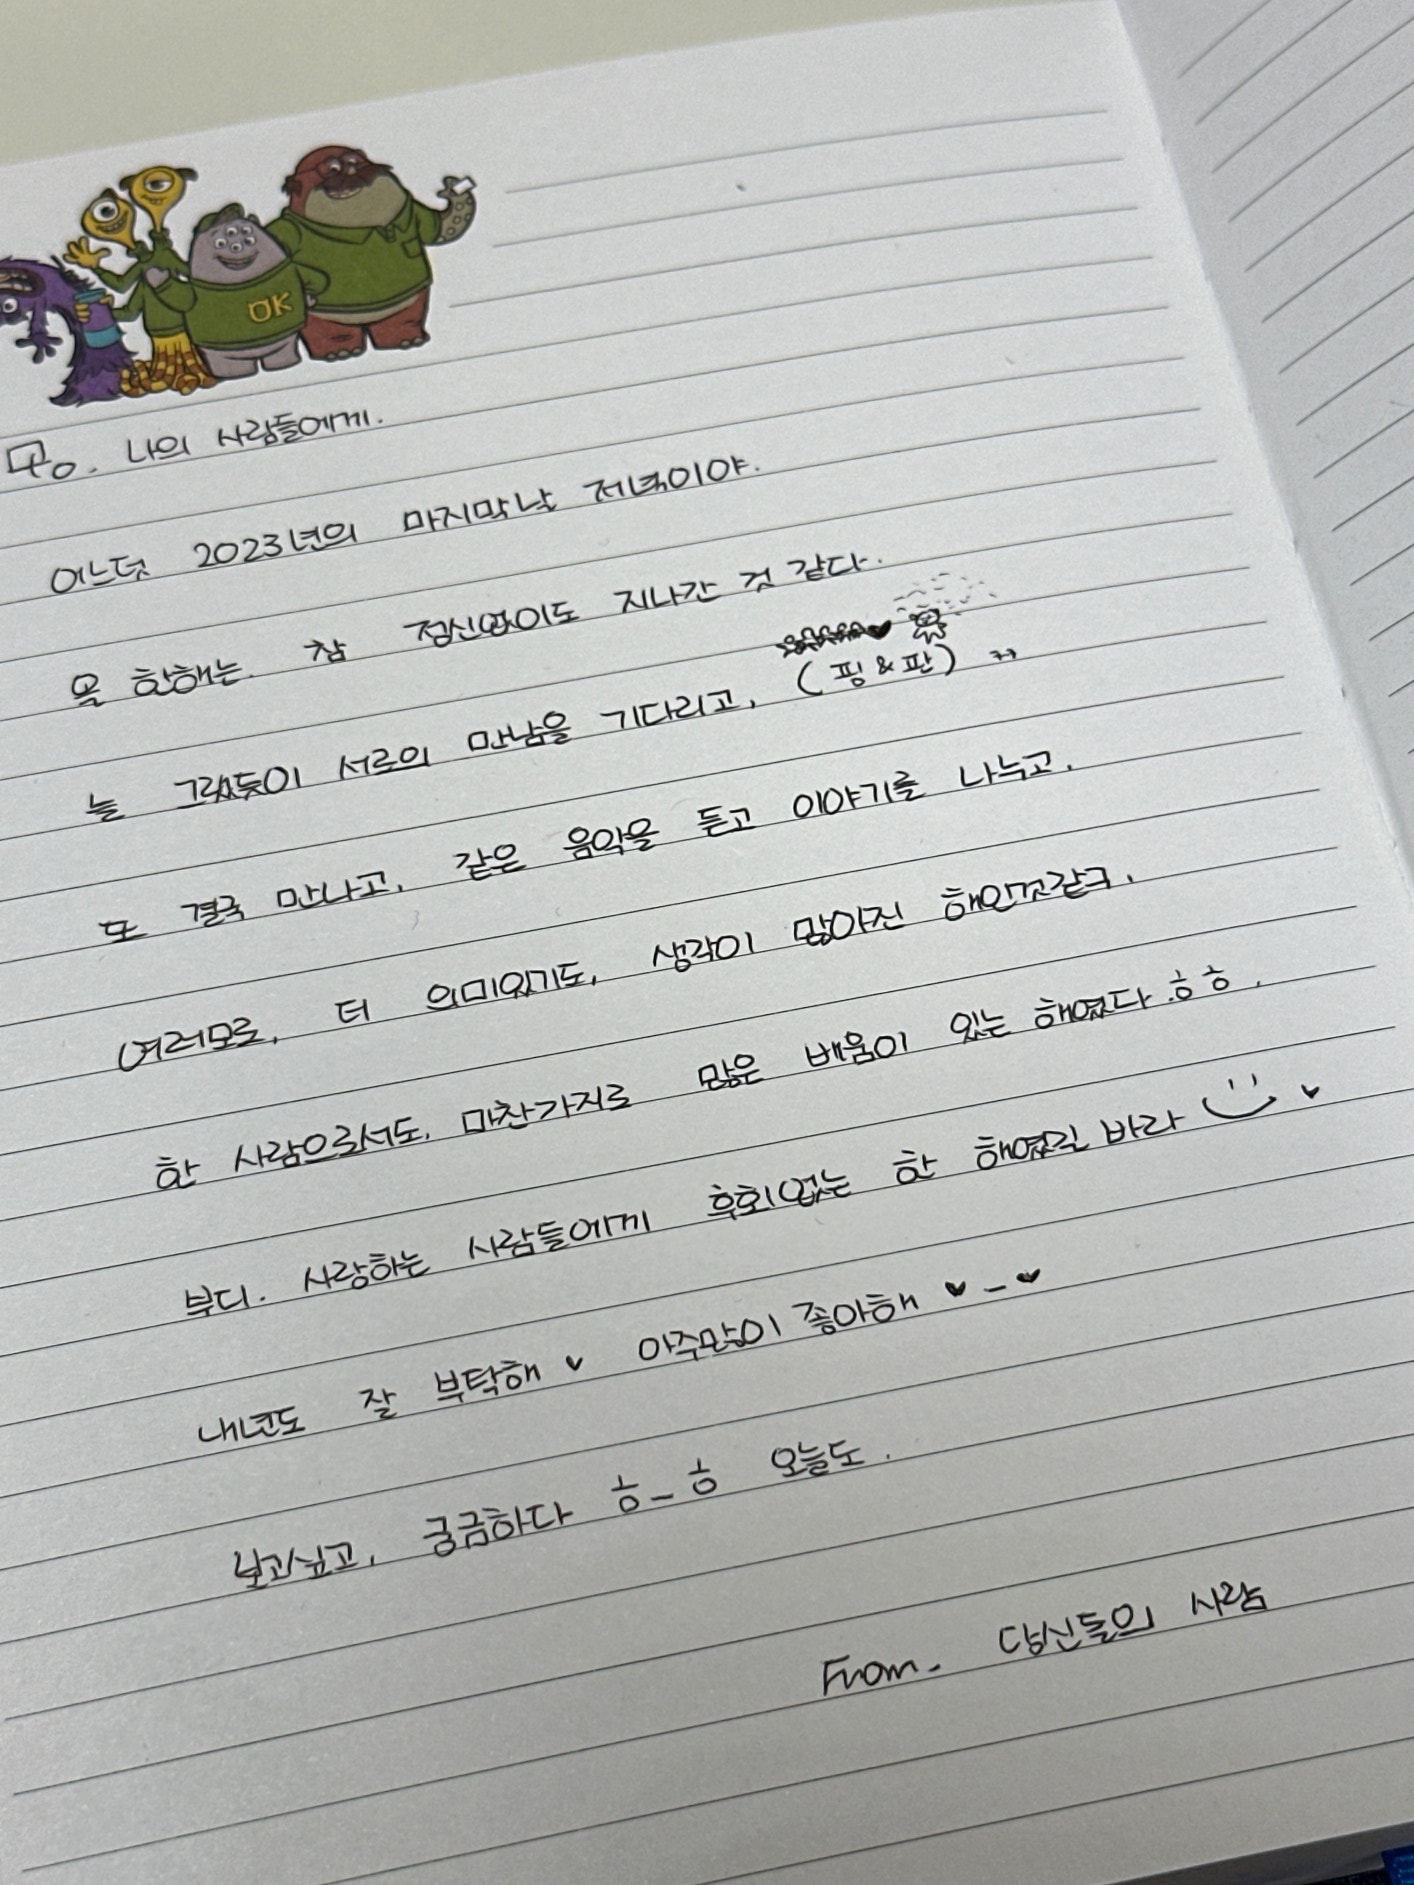 OK
뭉. 나의 사람들에게.
어느덧 2023년의 마지막날 저녁이야.
올 한해는. 참 정신없이도 지나간 것 같다.
늘 그랬듯이 서로의 만남을 기다리고, (핑&판) ㅋㅋ
또 결국 만나고, 같은 음악을 듣고 이야기를 나누고,
여러모로, 더 의미있기도, 생각이 많아진 해인것같구.
한 사람으로서도, 마찬가지로 많은 배움이 있는 해였다.ㅎㅎ.
부디. 사랑하는 사람들에게 후회없는 한 해였길 바라 ♥
내년도 잘 부탁해 ♥ 아주많이 좋아해 ♥-♥
보고싶고, 궁금하다 ㅎ_ㅎ 오늘도.
From. 당신들의 사람